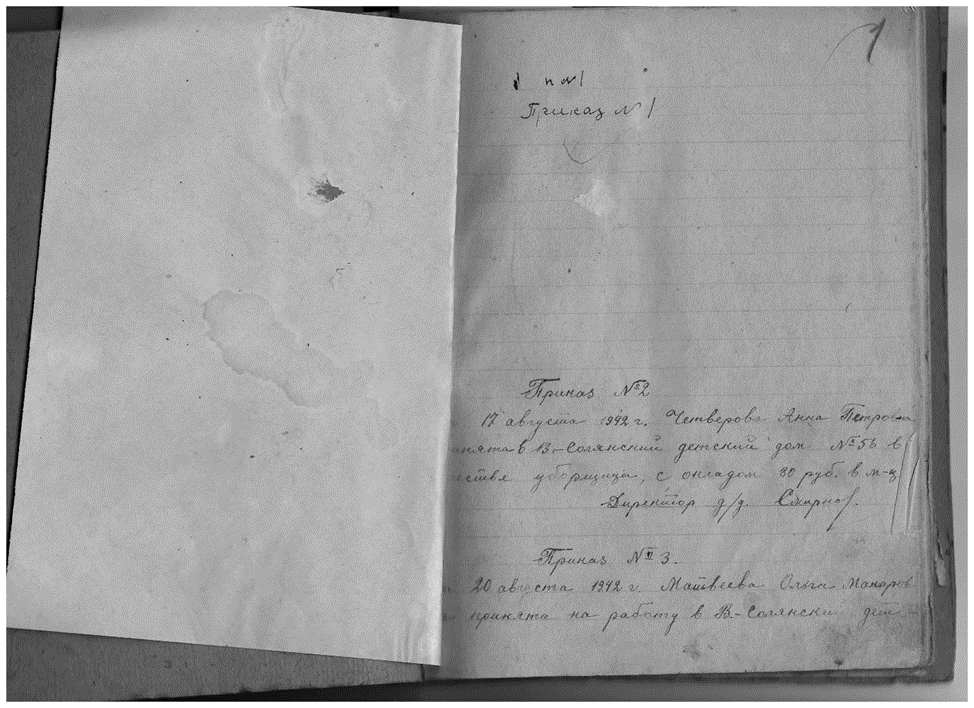 1
п №1
Приказ №1
Приказ №2
17 августа 1942 г. Четверова Анна Петровна
нята в В-Солянский детский дом № 56 в
стве уборщица, с окладом 80 руб. в м-ц
Директор д/д. Смирнов.
Приказ № 3.
20 августа 1942 г. Матвеева Ольга Макаров
принята на работу в В.-Солянский дет-